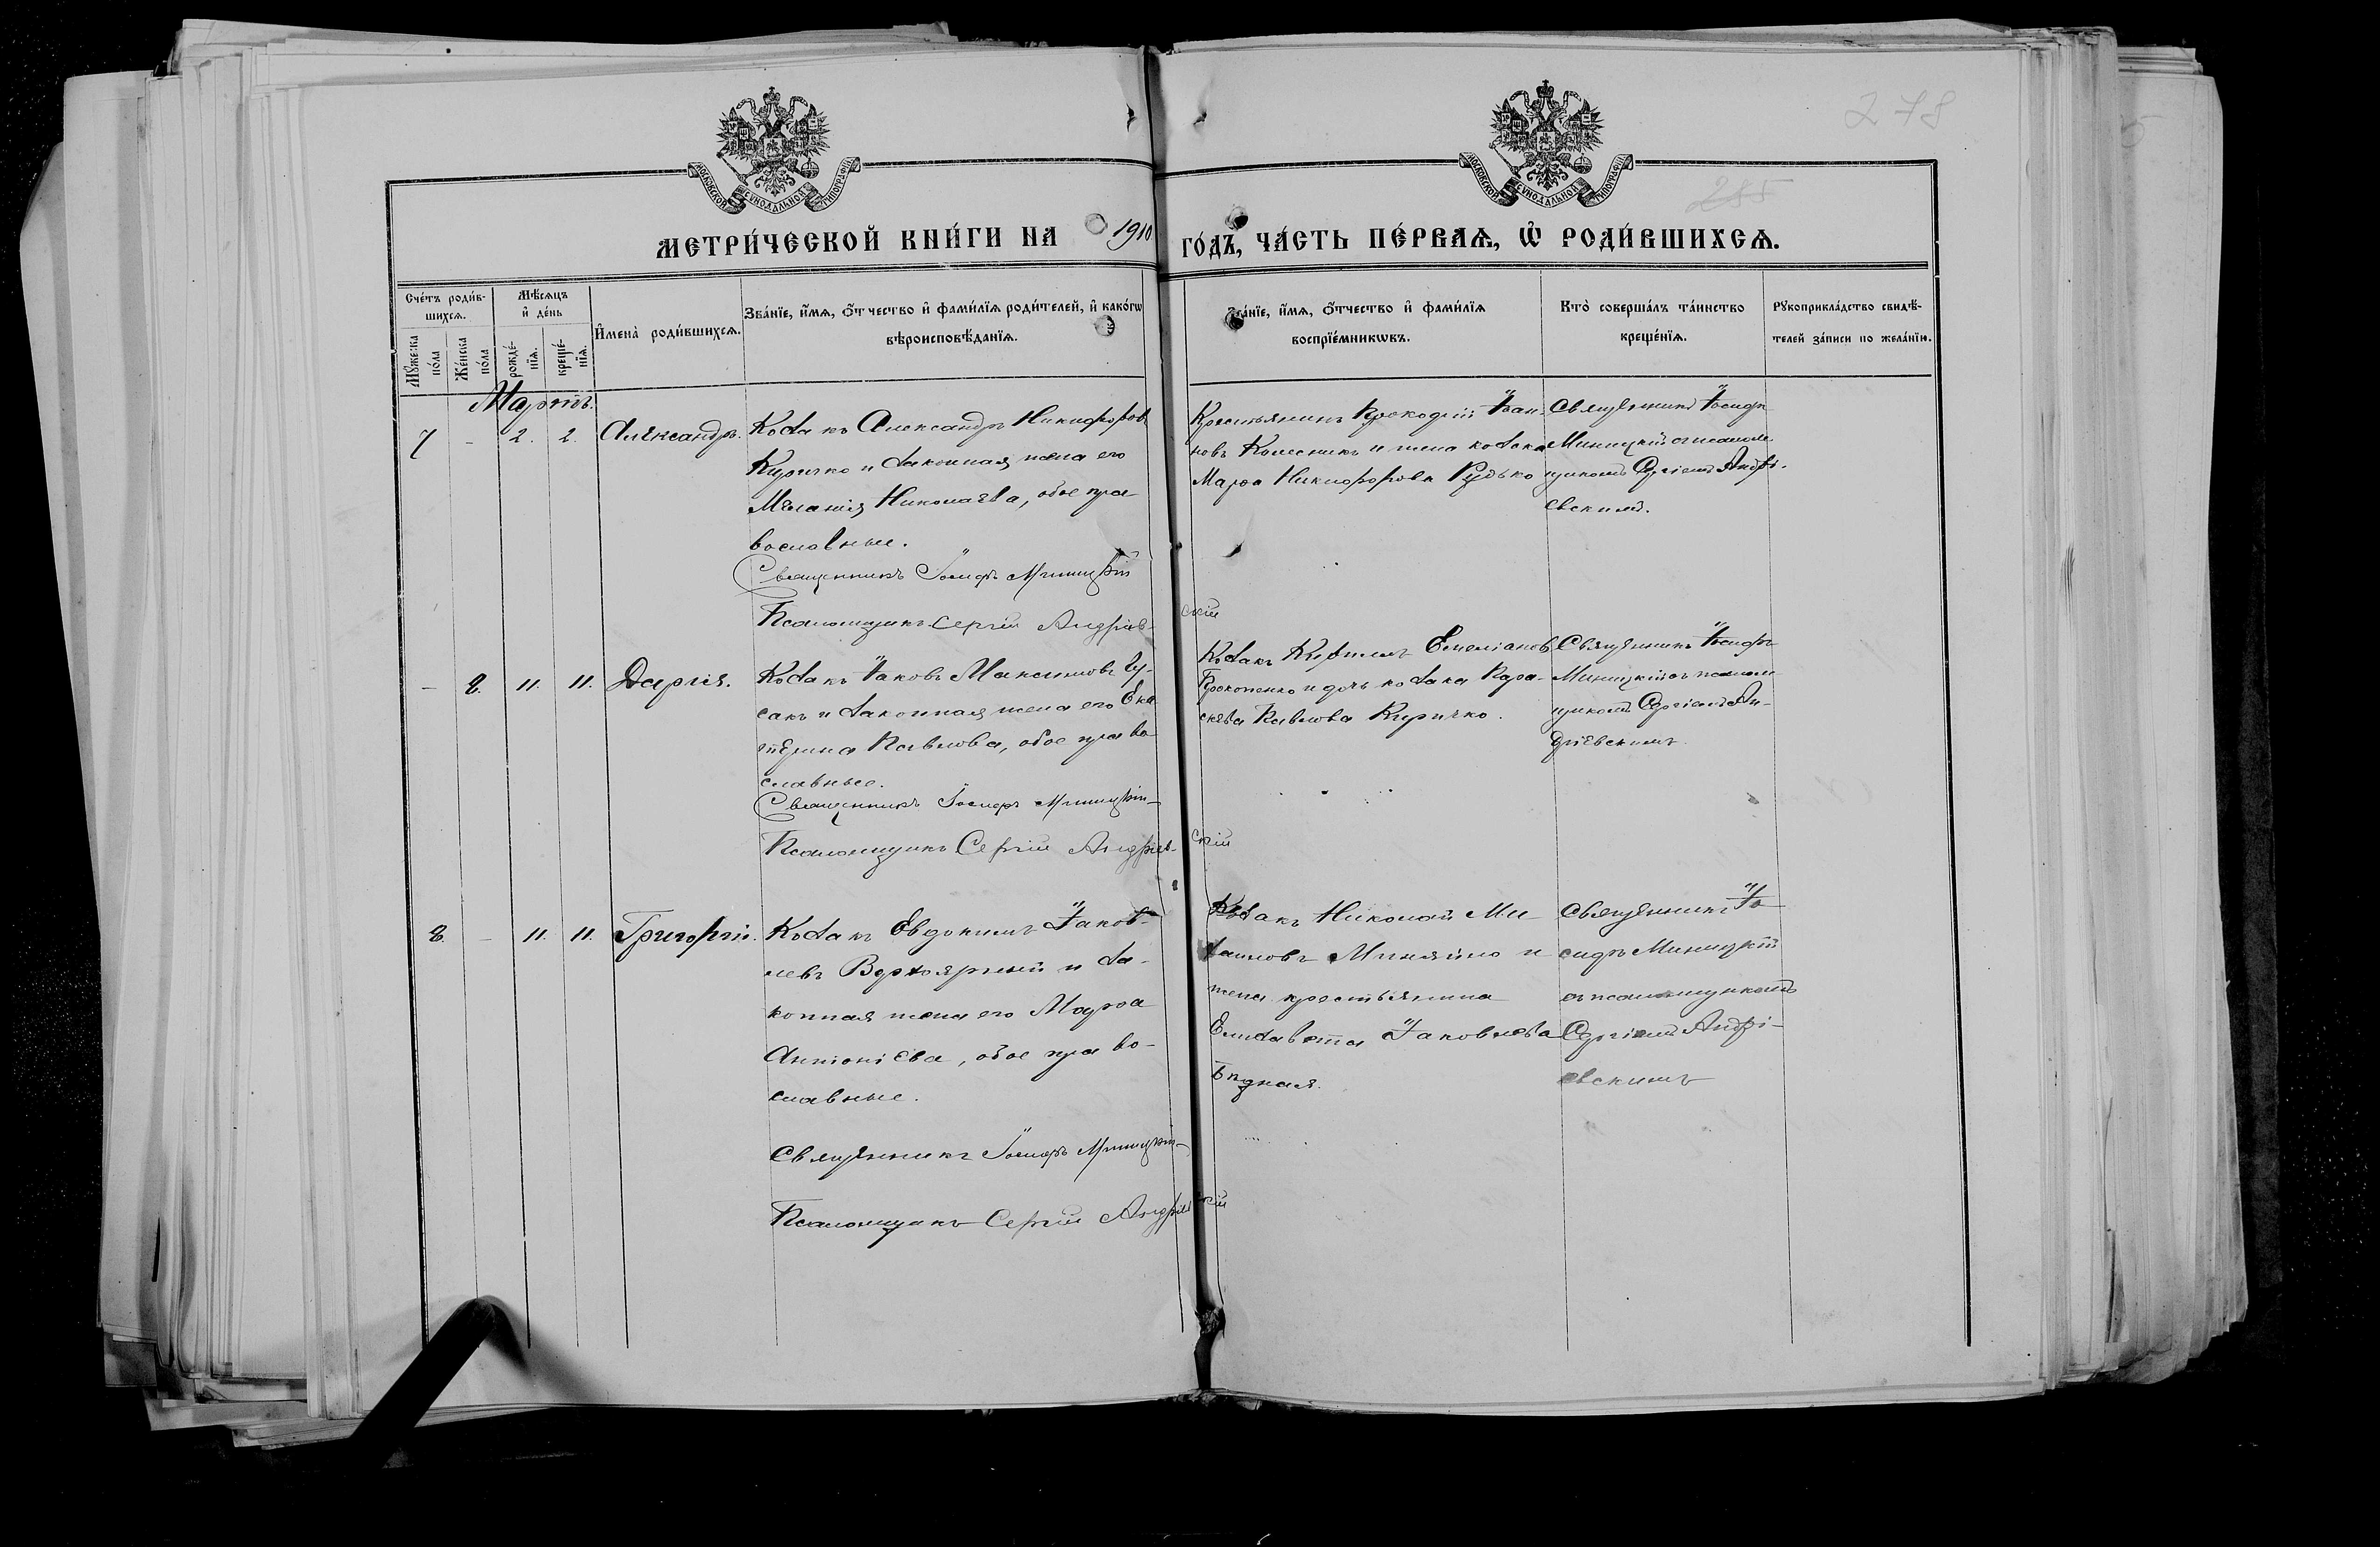 278
285
МОСКОВСКОЙ СѴНОДАЛЬНОЙ ТИПОГРАФІИ
МОСКОВСКОЙ СѴНОДАЛЬНОЙ ТИПОГРАФІИ
МЕТРИ́ЧЕСКОЙ КНИ́ГИ НА 1910 ГО́ДЪ, ЧА́СТЬ ПЕ́РВАѦ, Ѡ҆ РОДИ́ВШИХСѦ.
Сче́тъ роди́в-
шихсѧ.
Мꙋ́жеска
по́ла
Же́нска
по́ла
Мѣ́сѧцъ
и҆ де́нь
рожде́-
нїѧ.
креще́-
нїѧ.
И҆мена̀ роди́вшихсѧ.
Зва́нїе, и҆́мѧ, ѻ҆́тчество и҆ фами́лїѧ роди́телей, и҆ како́гѡ
вѣроисповѣ́данїѧ.
Зва́нїе, и҆́мѧ, ѻ҆́тчество и҆ фами́лїѧ
воспрїе́мникѡвъ.
Кто̀ соверша́лъ та́инство
креще́нїѧ.
Рꙋкоприкла́дство свидѣ́-
телей за́писи по жела́нїю.
Мартъ.
7 - 2. 2. Александръ.
Козакъ Александръ Никифоровъ
Киричко и законная жена его
Меланія Николаева, обое пра-
вославные.
Священникъ Іосифъ Миницкій
Псаломщикъ Сергій Андріев-
скій
Крестьянинъ Іоан-
новъ Колесникъ и жена козака
Марфа Никифорова Рудько
Священникъ Іосифъ
Миницкій съ псалом-
щикомъ Сергіемъ Андрі-
евскимъ.
- 2. 11. 11. Дарія.
Козакъ Іаковъ Максимовъ Гу-
сакъ и законная жена его Ека
терина Павлова, обое право-
славные.
Священникъ Іосифъ Миницкій
Псаломщикъ Сергій Андріев-
скій
Козакъ Емеліановъ
Прокопенко и дочь козака Пара-
скева Павлова Киричко.
Священникъ Іосифъ
Миницкій съ псалом-
щикомъ Сергіемъ Ан-
дріевскимъ.
8. - 11. 11. Григорій.
Козакъ Евдокимъ Іаков-
левъ Верхоярный и за-
конная жена его Марфа
Антоніева, обое право-
славные.
Священникъ Іосифъ Миницкій
Псаломщикъ Сергій Андріевскій
Козакъ Николай Ми-
хаиловъ Миняйло и
жена крестьянина
Елизавета Іаковлева
Священникъ Іо-
сифъ Миницкій
съ псаломщикомъ
Сергіемъ Андрі-
евскимъ